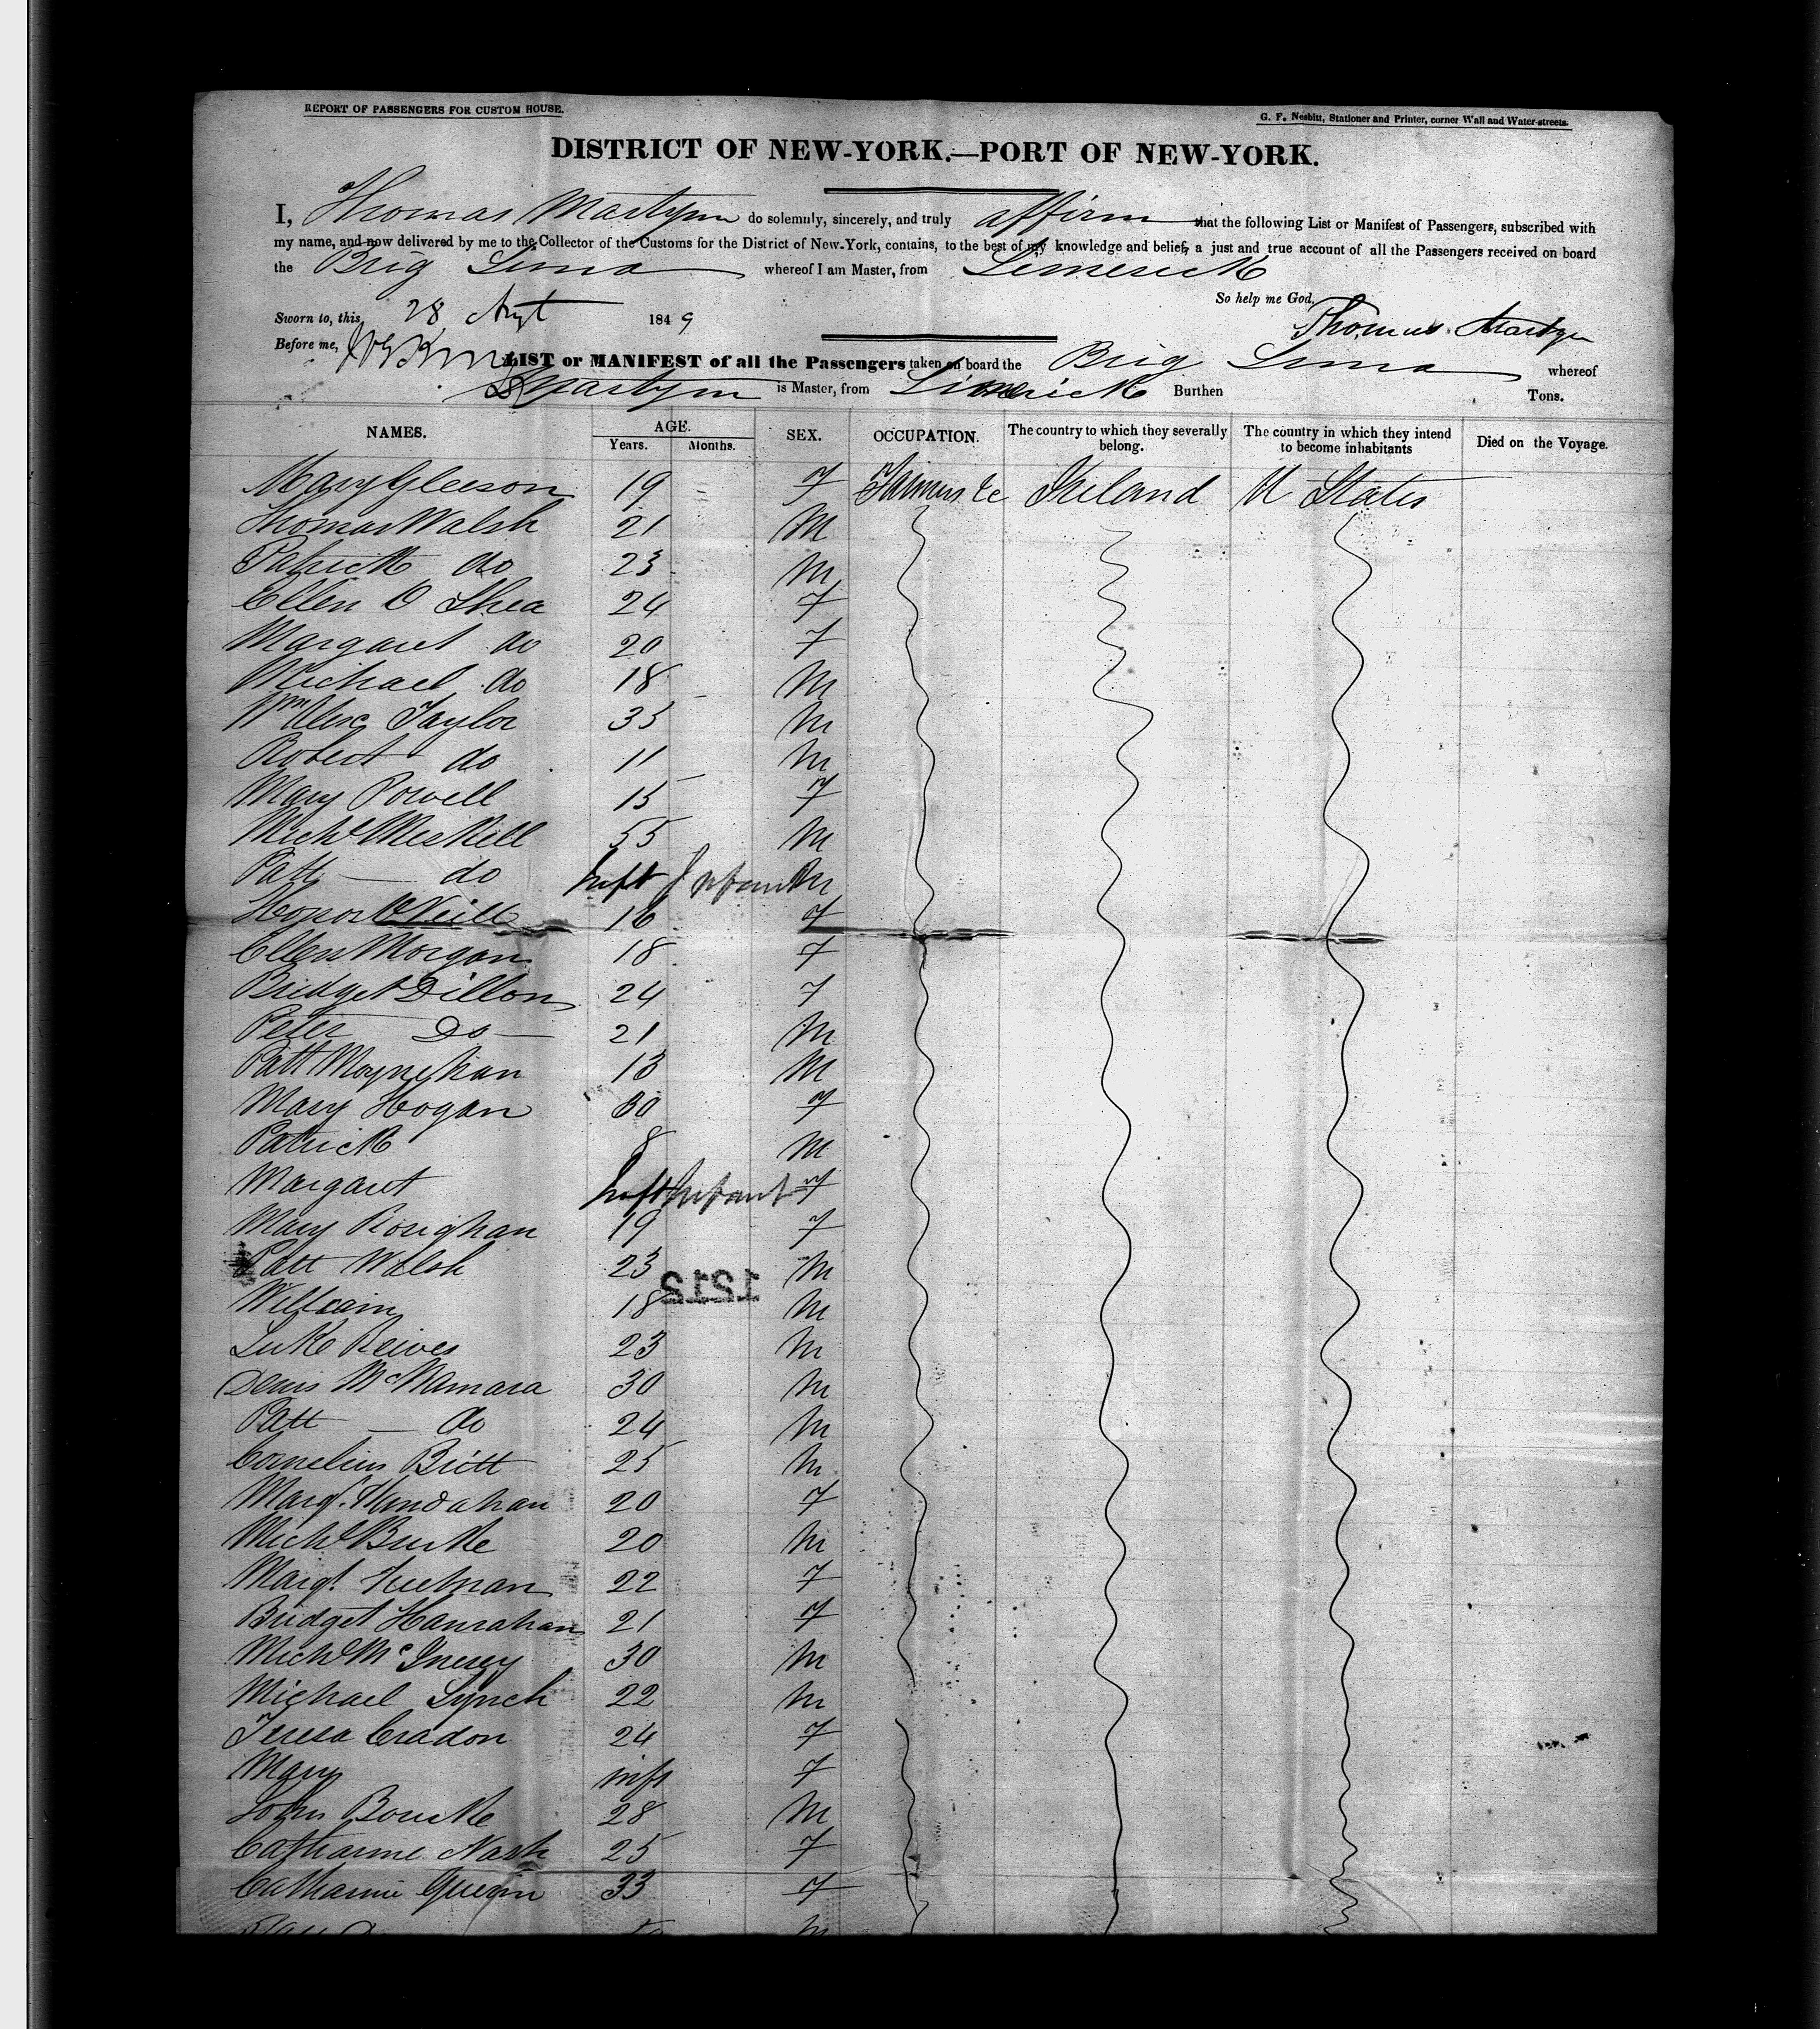 REPORT OF PASSENGERS FOR CUSTOM HOUSE.
G. F. Nesbitt, Stationer and Printer, corner Wall and Water-streets.
DISTRICT OF NEW-YORK.—PORT OF NEW-YORK.
I, Thomas Martyn do solemnly, sincerely, and truly affirm that the following List or Manifest of Passengers, subscribed with
my name, and now delivered by me to the Collector of the Customs for the District of New-York, contains, to the best of my knowledge and belief, a just and true account of all the Passengers received on board
the Brig Lima whereof I am Master, from Limerick
So help me God.
Sworn to, this 28 Augt 1849 Thomas Martyn
Before me,
LIST or MANIFEST of all the Passengers taken on board the Brig Lima whereof
Martyn is Master, from Limerick Burthen Tons.
NAMES. AGE. Years. Months. SEX. OCCUPATION. The country to which they severally belong. The country in which they intend to become inhabitants Died on the Voyage.
Mary Gleeson 19 F Farmers &c Ireland U States
Thomas Walsh 21 M
Patrick do 23 M
Ellen O Shea 24 F
Margaret do 20 F
Michael do 18 M
Wm Alex Taylor 35 M
Robert do 11 M
Mary Powell 15 F
Michl Meskill 55 M
Patt do Inft Infant M
Honor O'Neill 16 F
Ellen Morgan 18 F
Bridget Dillon 24 F
Peter Do 21 M
Patt Moynehan 13 M
Mary Hogan 30 F
Patrick 8 M
Margaret Inft Infant F
Mary Roughan 19 F
Patt Walsh 23 M
1212
William 18 M
Luke Reives 23 M
Denis McNamara 30 M
Patt do 24 M
Cornelius Britt 25 M
Margt. 20 F
Michl Burke 20 M
Margt. 22 F
Bridget Hanrahan 21 F
Michl McInerey 30 M
Michael Lynch 22 M
Teresa Cradon 24 F
Mary inft F
John Bourke 28 M
Catharine Nash 25 F
Catharine Guerin 33 F